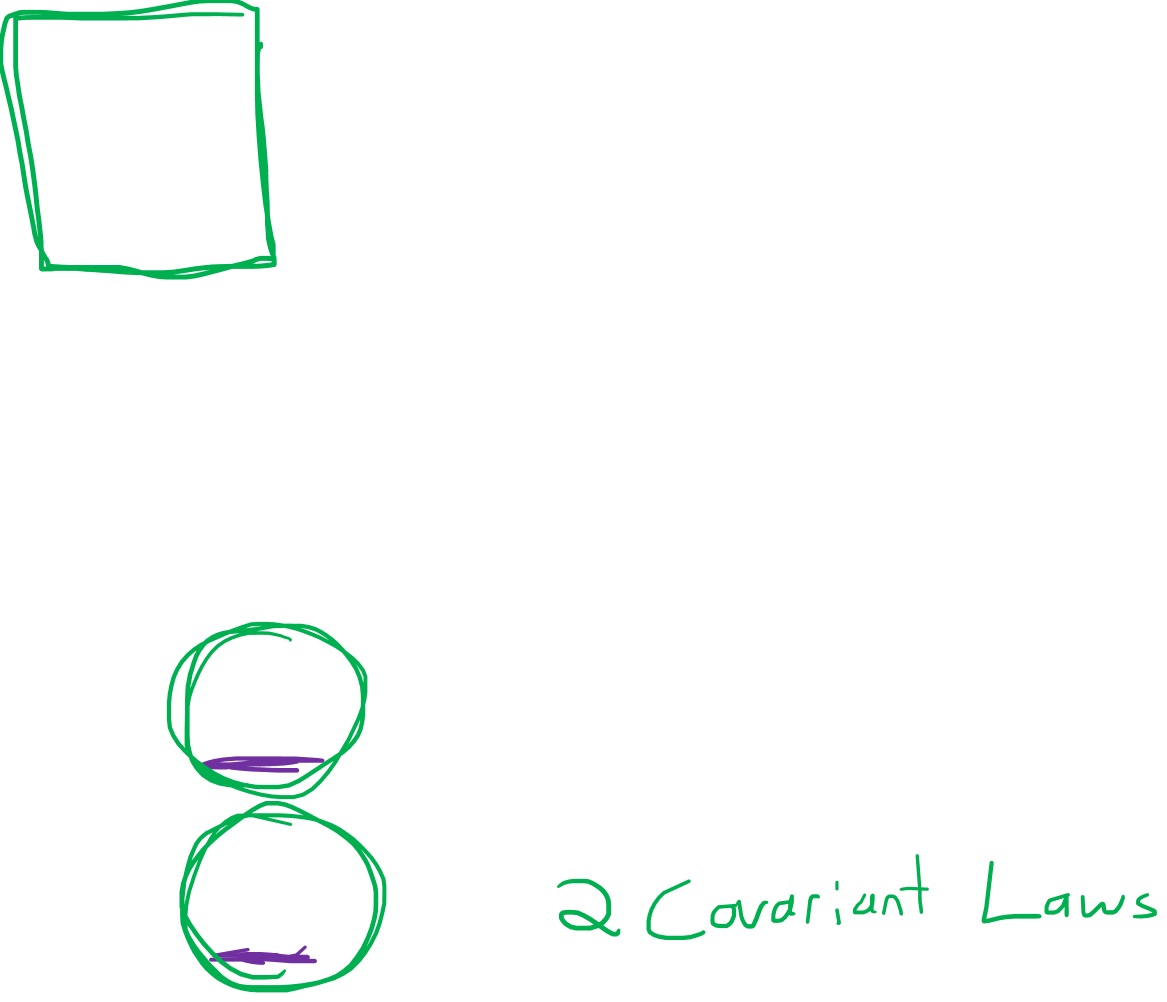 2 Covariant Laws